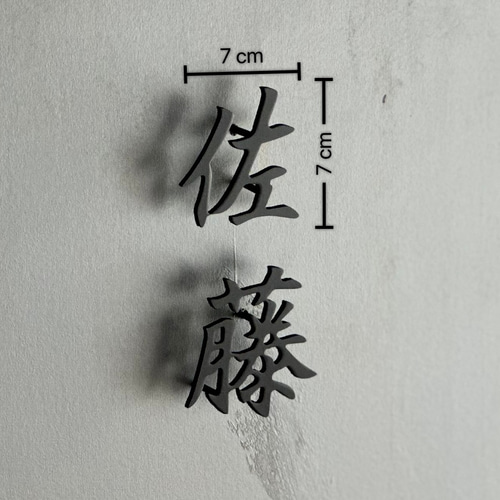 7 cm
7 cm
佐
藤